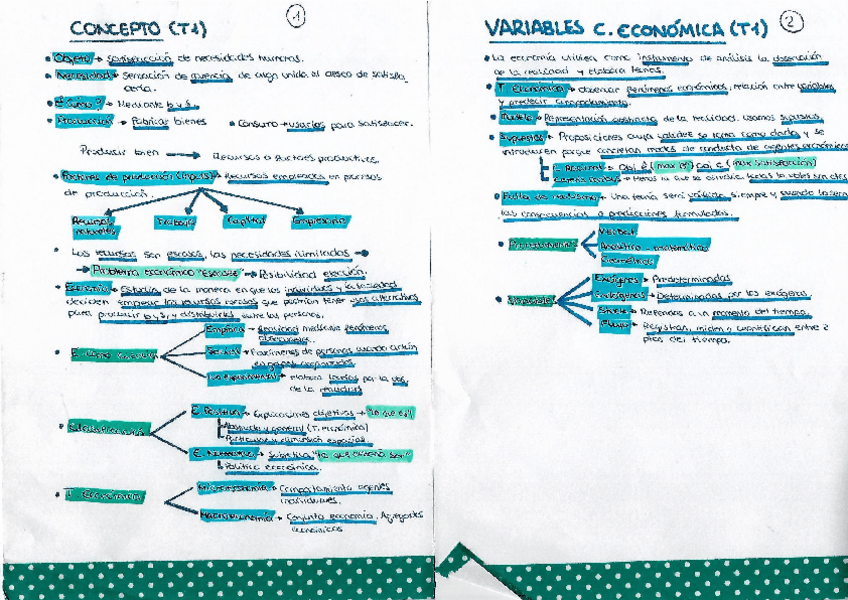 1
CONCEPTO (T1)
• Objeto → satisfacción de necesidades humanas.
• Necesidad → Sensación de carencia de algo unido al deseo de satisfa_
cerla.
• ¿Cómo? → Mediante b y s.
• Producción → Fabricar bienes • Consumo → usarlos para satisfacer.
Producir bien → Recursos o factores productivos.
• Factores de producción (inputs) → Recursos empleados en procesos
de producción.
Recursos naturales Trabajo Capital Empresario
• Los recursos son escasos, las necesidades ilimitadas →
→ Problema económico "Escasez" → Posibilidad elección.
• Economía → Estudio de la manera en que los individuos y la sociedad
deciden emplear los recursos escasos que podrían tener usos alternativos
para producir b y s y distribuirlos entre las personas.
Empírica → mediante fenómenos
observables.
• E. como ciencia
Social → Fenómenos de personas cuando actúan
en grupos organizados
→ elabora teorías por la obs.
de la realidad
E. Positiva → Explicaciones objetivas → "lo que es"
Abstracta y general (T. económica)
Particular y dimensión espacial.
E. Normativa → Subjetiva "lo que debería ser"
Política económica.
• T. Económica
Microeconomía → Comportamiento agentes
individuales.
Macroeconomía → Conjunto economía. Agregados
económicos
2
VARIABLES C. ECONÓMICA (T1)
• La economía utiliza como instrumento de análisis la observación
de la realidad y elabora teorías.
• T. Económica → observar fenómenos económicos, relación entre variables
y predecir comportamiento.
• Modelo → Representación abstracta de la realidad. Usamos supuestos.
• Supuestos → Proposiciones cuya validez se toma como dada y se
introducen porque concretan modos de conducta de agentes económicos
C. Racional → (max Bº) (max satisfacción)
Ceteris paribus → Menos la que se estudia, todas las vbles son ctes
• Falta de realismo → Una teoría será válida siempre y cuando lo sean
las consecuencias o predicciones formuladas.
• Procedimientos
Verbal
Analítico - matemático
Geométrico
• Variables
Exógenas → Predeterminadas
Endógenas → Determinadas por las exógenas
Stock → Referidas a un momento del tiempo.
Flujo → Registran, miden o cuantifican entre 2
ptos del tiempo.